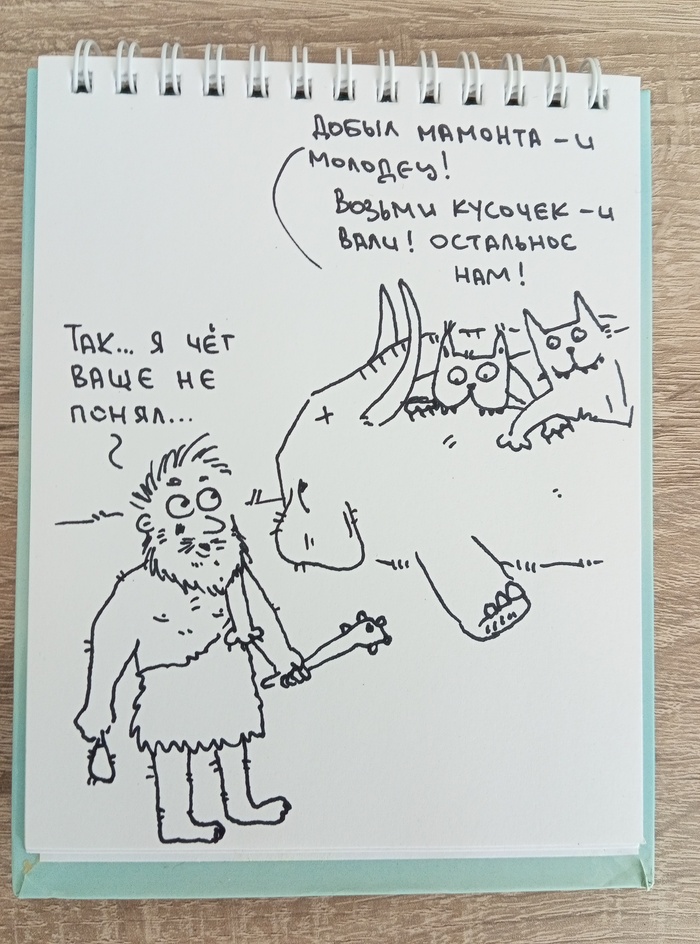 ДОБЫЛ МАМОНТА – И
МОЛОДЕЦ!
ВОЗЬМИ КУСОЧЕК – И
ВАЛИ! ОСТАЛЬНОЕ
НАМ!
ТАК... Я ЧЁТ
ВАЩЕ НЕ
ПОНЯЛ...